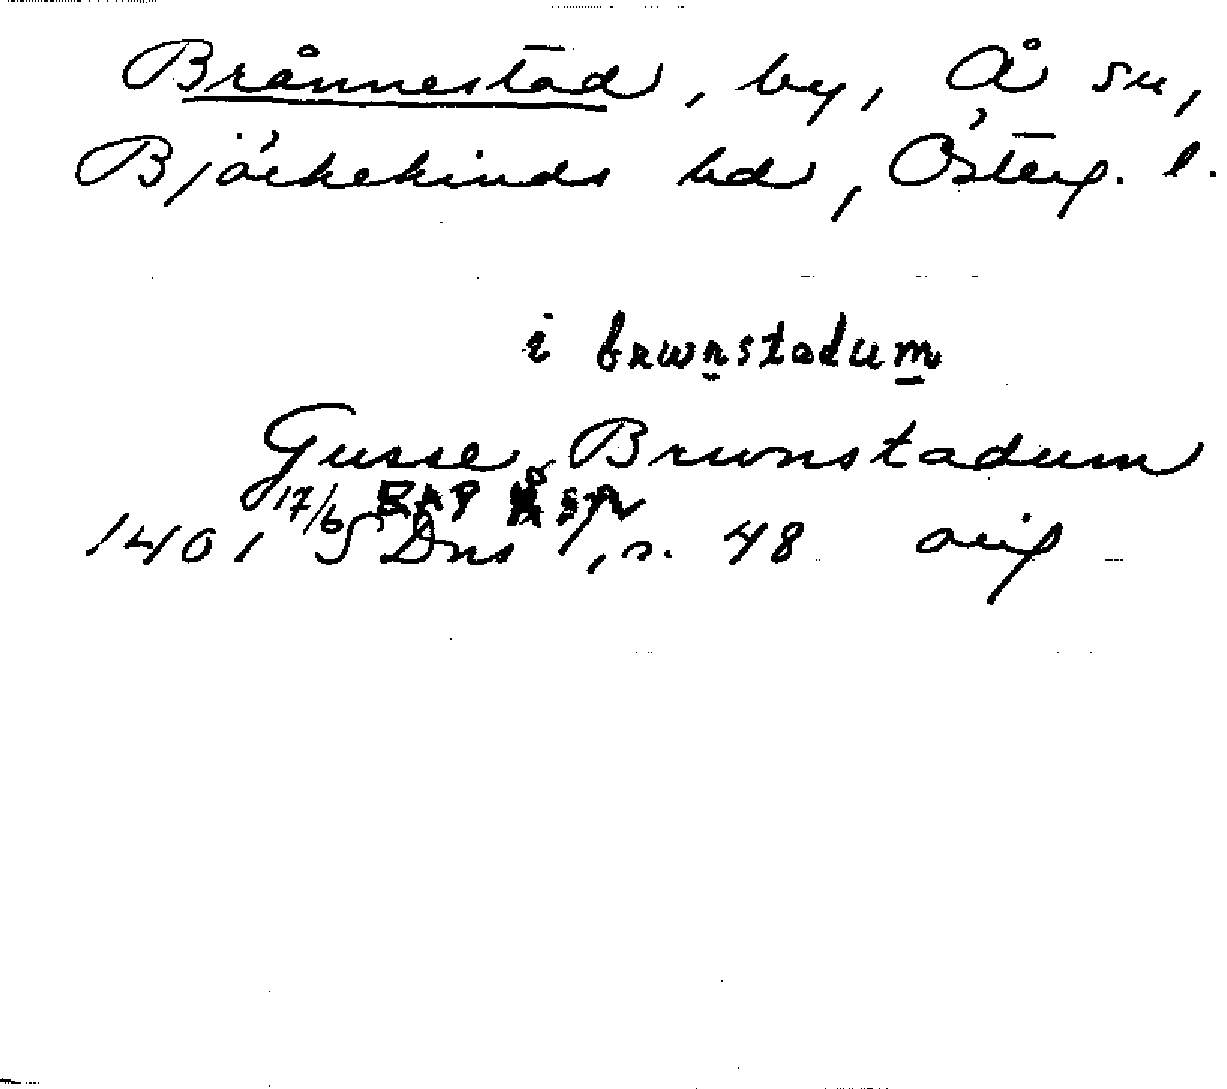 Brånnestad, by, Å sn,
Björkekinds hd, Österg. l.
i brwnstadum
Gusse Brwnstadum
1401 17/6 SDns, s. 48 orig